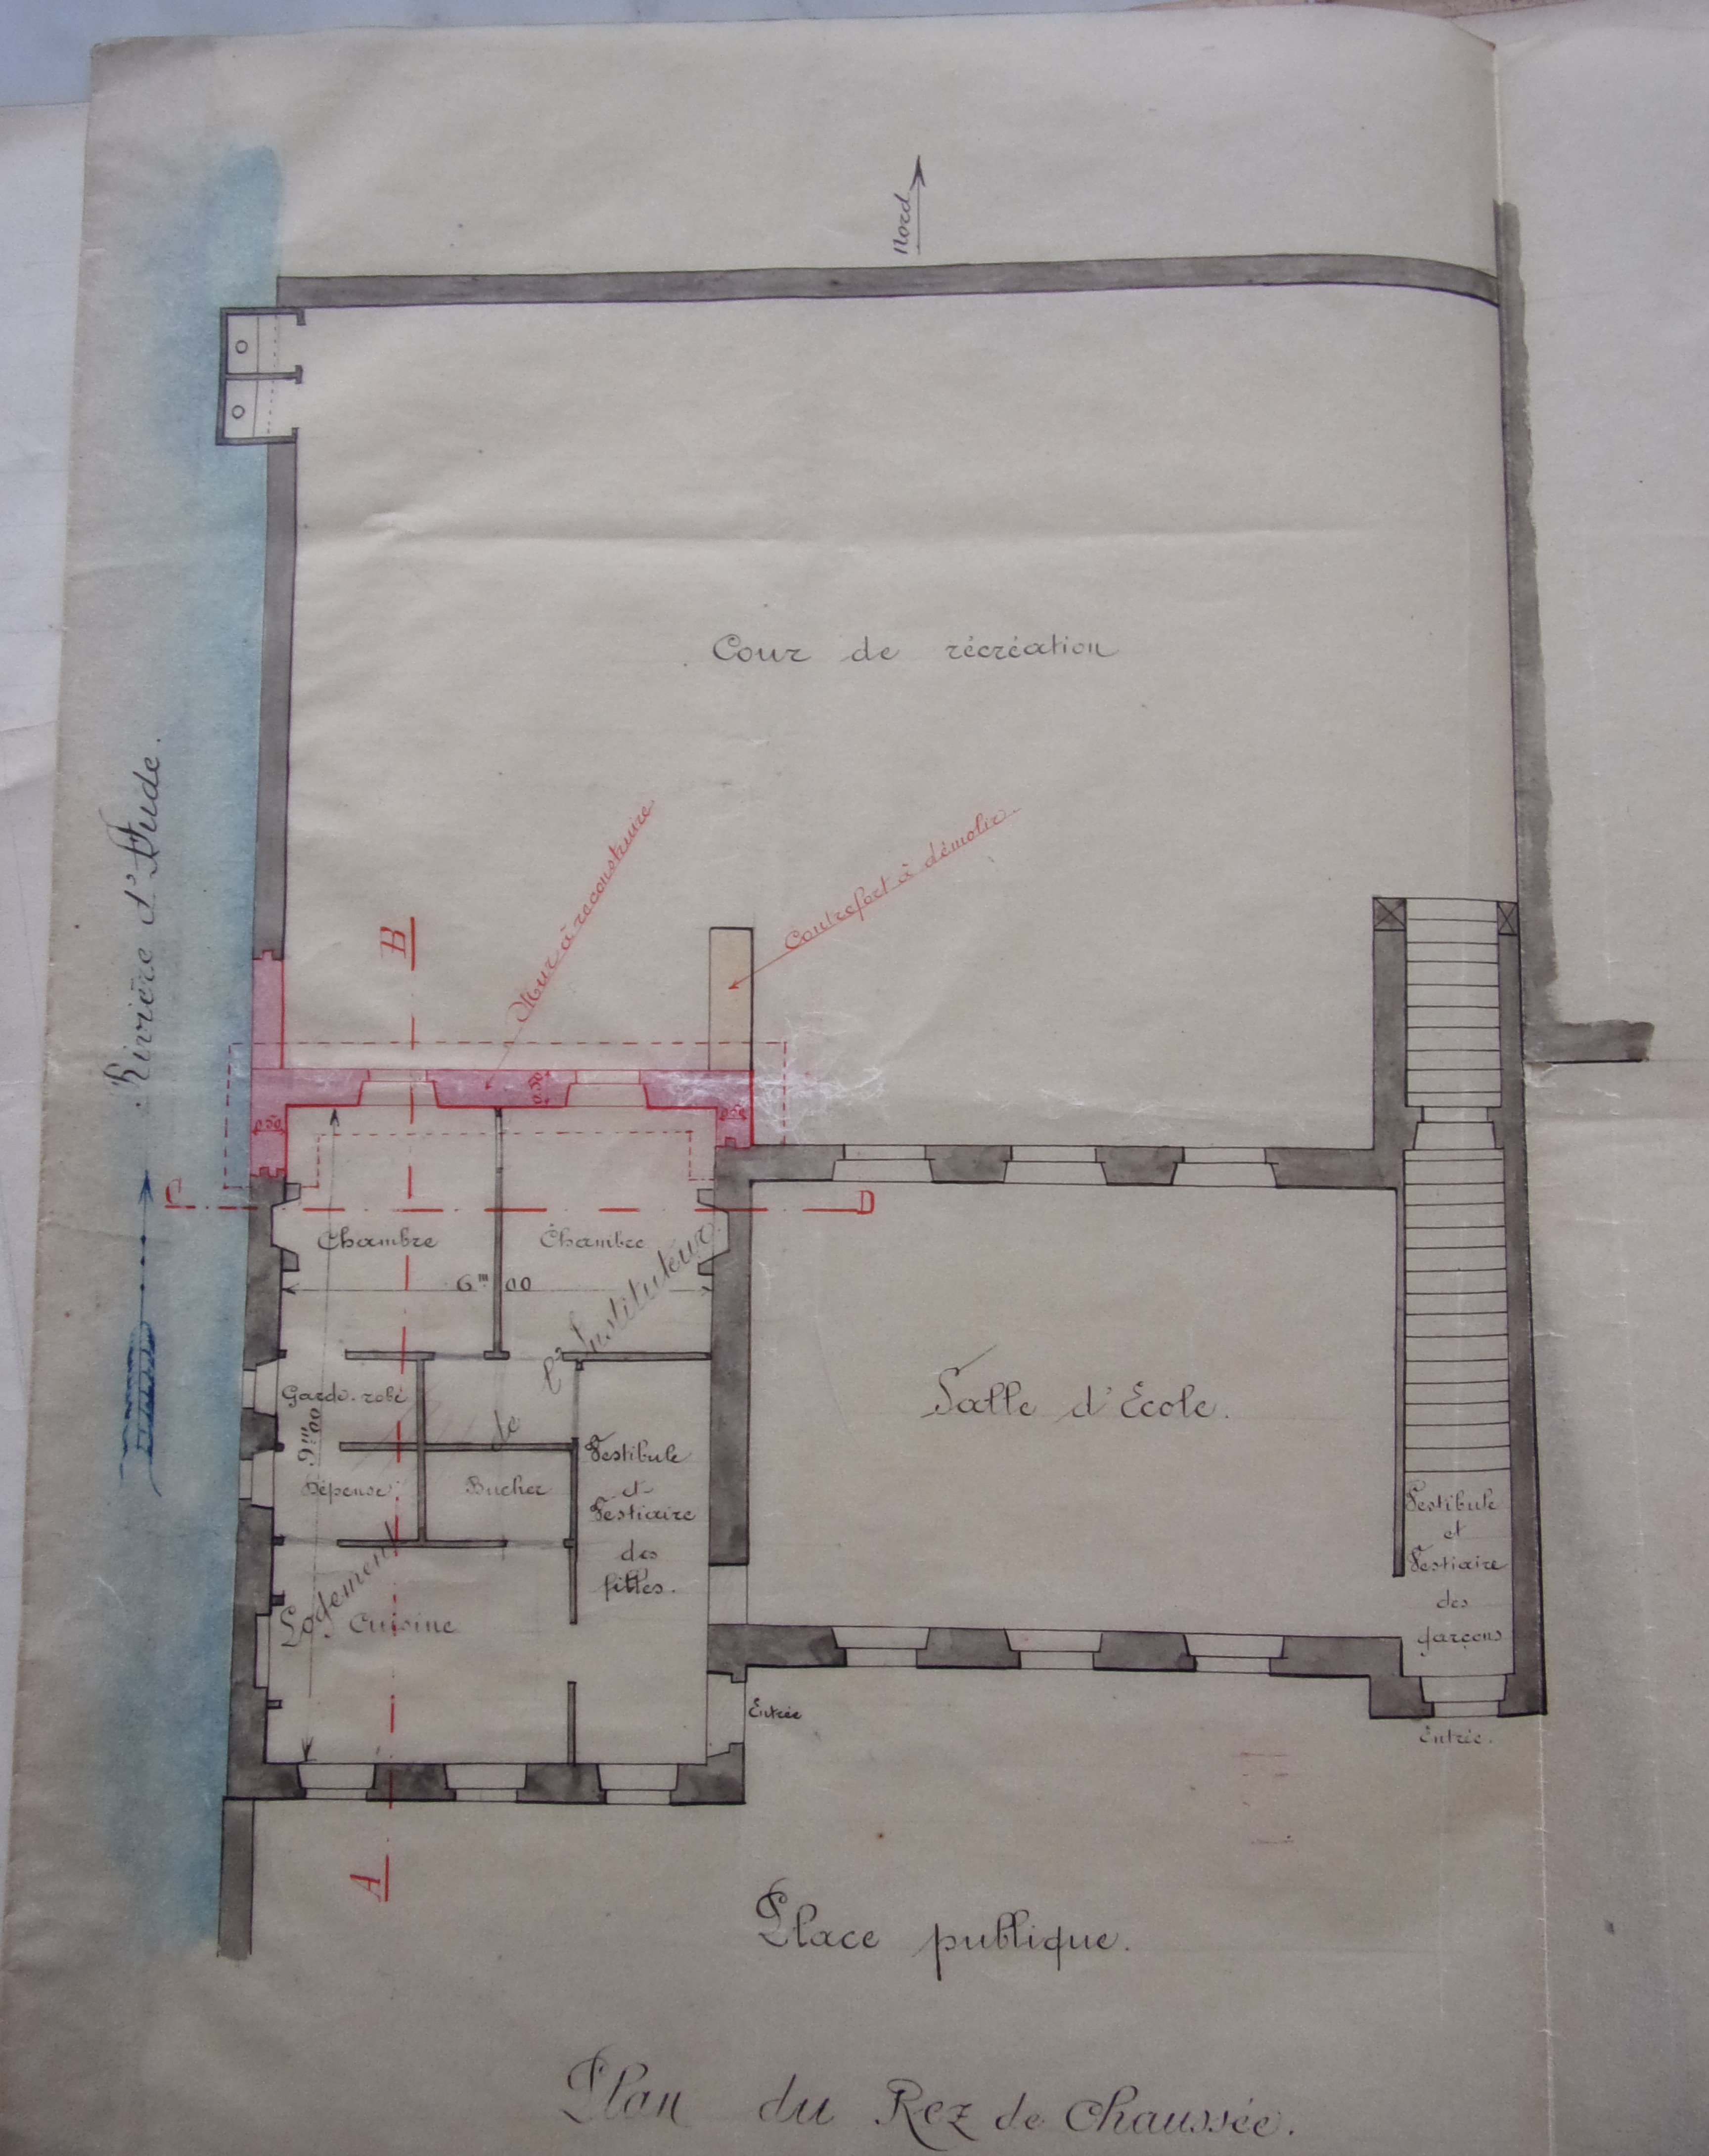 Nord
Cour de récréation
Rivière d'Aude.
Mur à reconstruire
Contrefort à démolir.
B
0.50
0.50
0.50
C
D
Chambre
Chambre
6m.00
Logement de l'Instituteur
Garde-robe
9m.00
Dépense
Bucher
Vestibule
et
Vestiaire
des
filles.
Cuisine
Salle d'Ecole.
Vestibule
et
Vestiaire
des
garçons
Entrée
Entrée.
A
Place publique.
Plan du Rez de Chaussée.